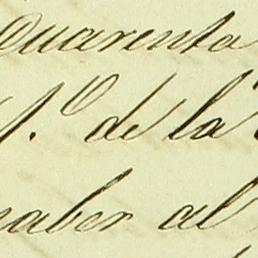 Quarenta
de la
haber al